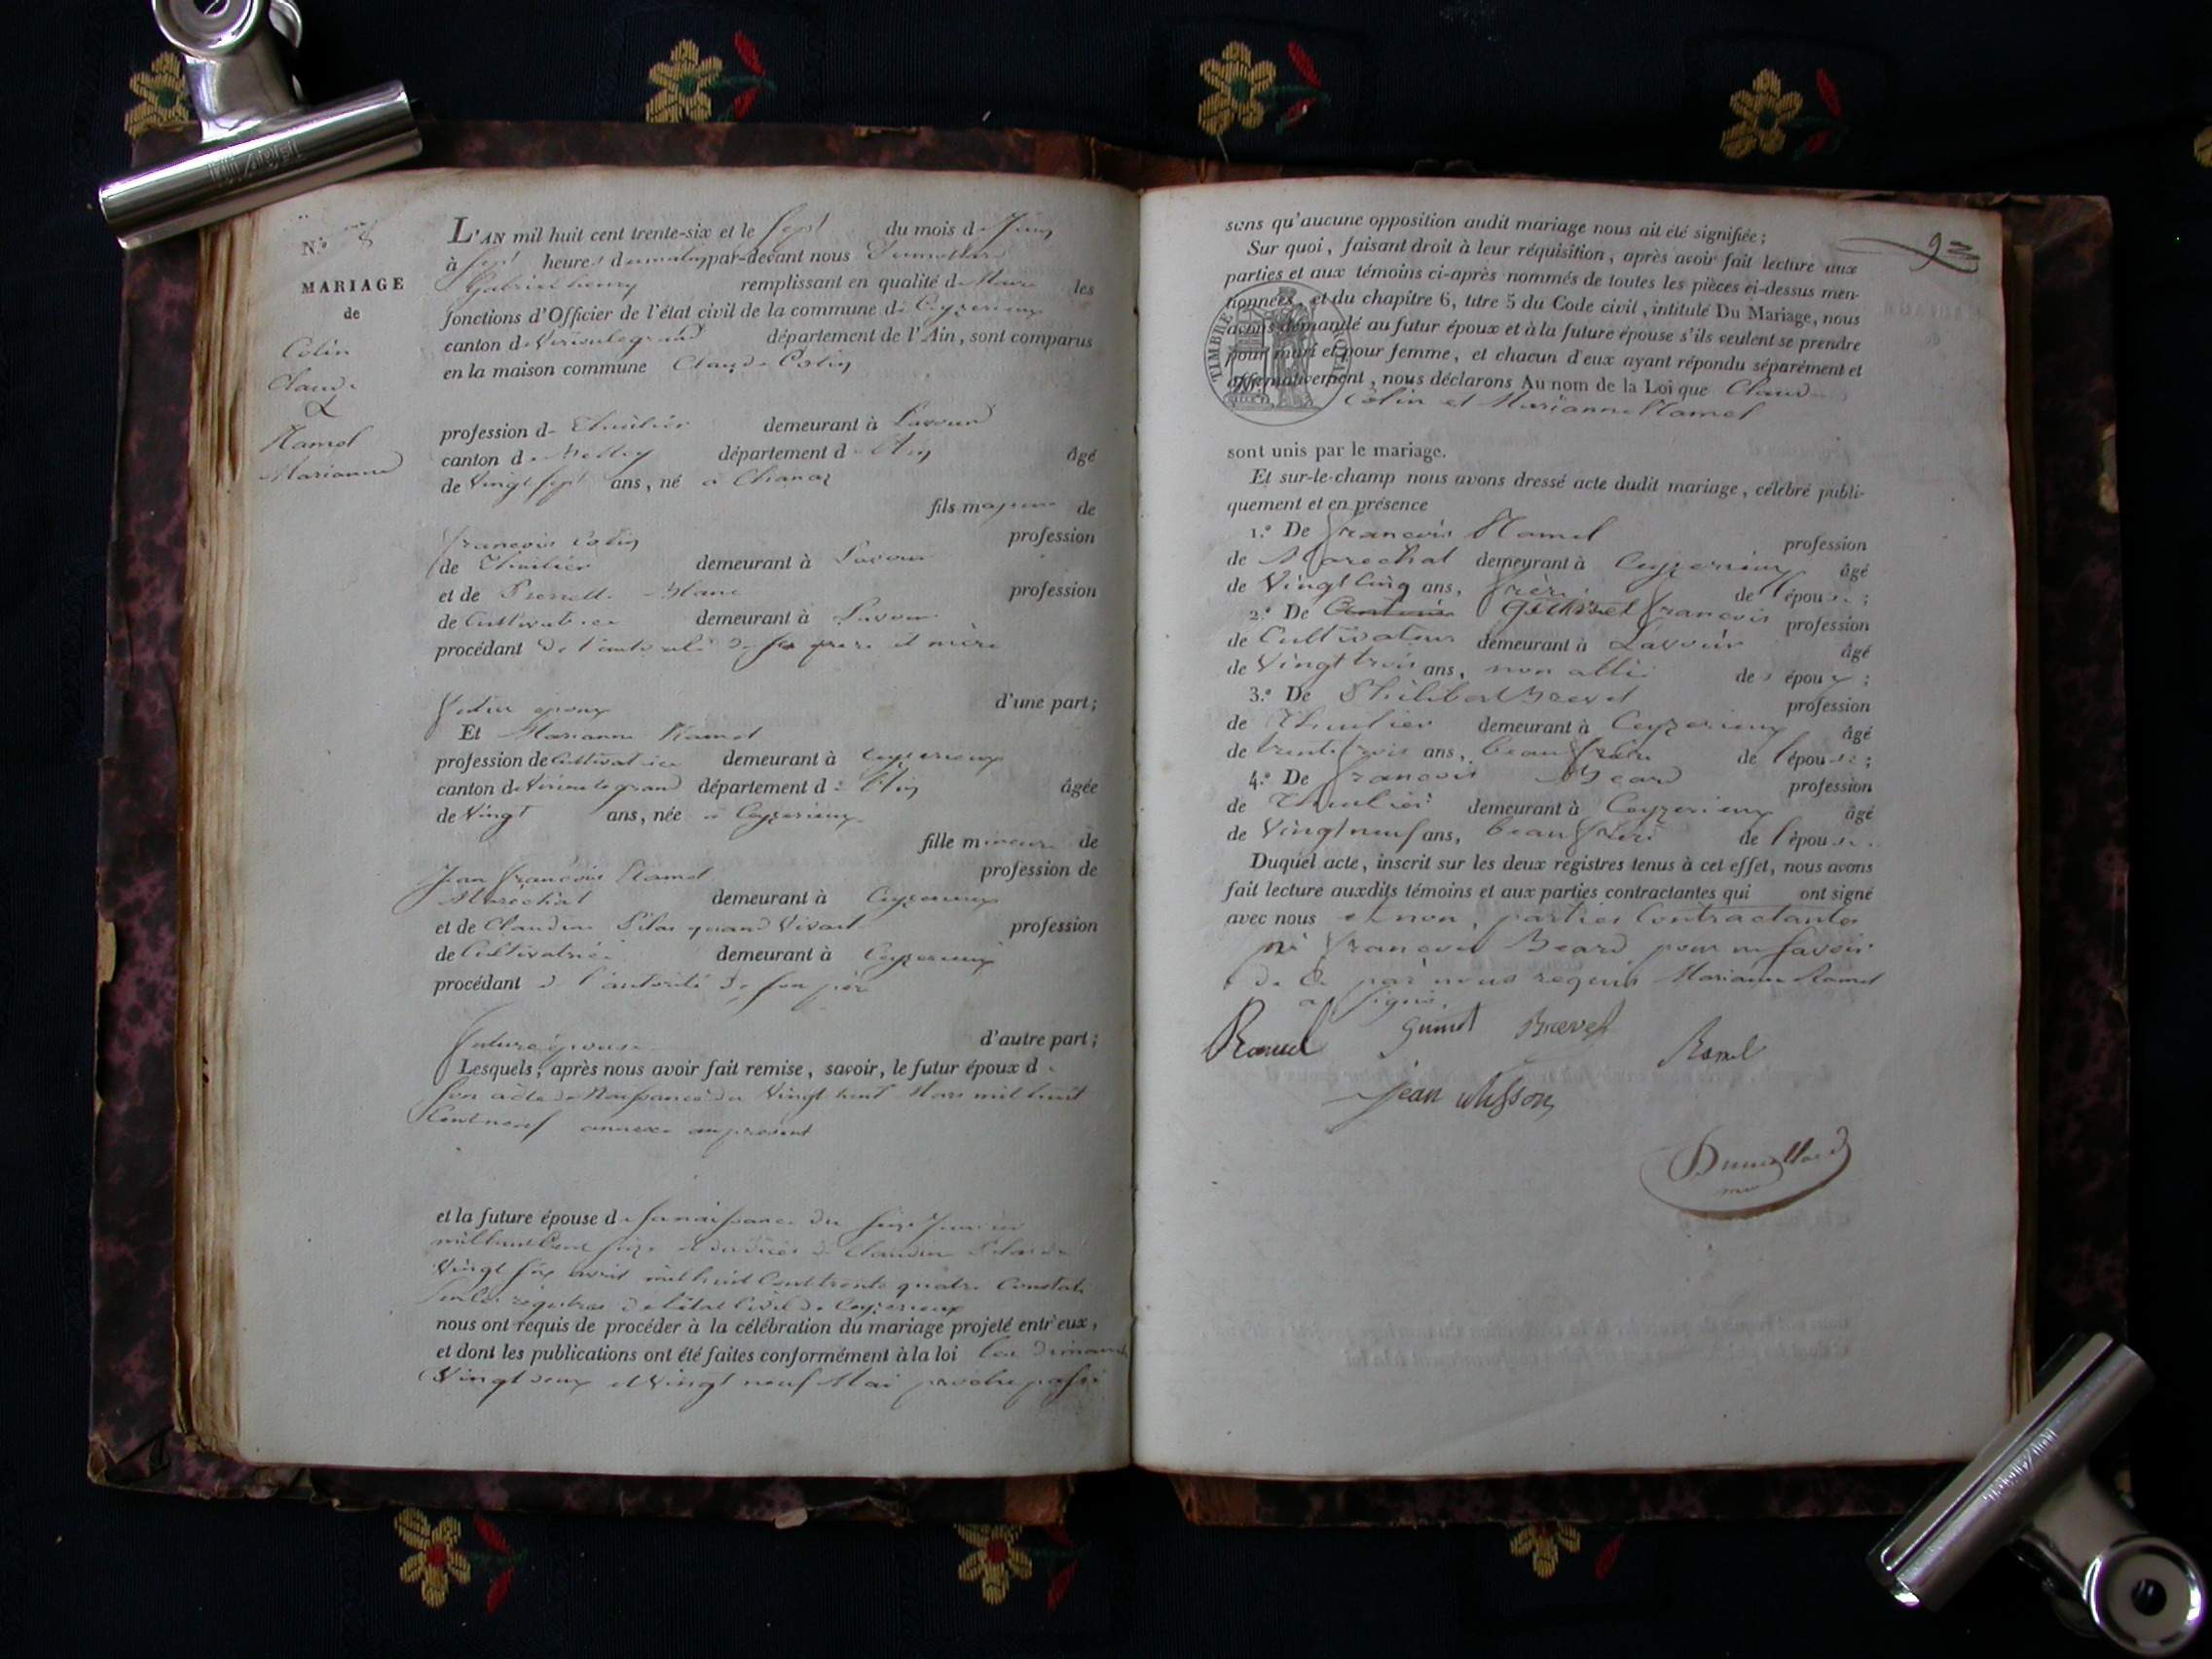 N.° 8
MARIAGE
de
Colin
Claude
&
Ramel
Marianne
L'AN mil huit cent trente-six et le sept du mois de Juin
à sept heures du matin par-devant nous
Gabriel henry remplissant en qualité de Maire les
fonctions d'Officier de l'état civil de la commune de Ceyzerieux
canton de Virieulegrand département de l'Ain, sont comparus
en la maison commune Claude Colin
profession de Thuilier demeurant à Lavour
canton de département d l'Ain âgé
de Vingt sept ans, né à Chanaz
fils majeur de
francois Colin profession
de Thuilier demeurant à Lavour
et de Pernette Blanc profession
de Cultivatrice demeurant à Lavour
procédant de l'autorité de ses père et mère
futur epoux d'une part;
Et Marianne Ramel
profession de Cultivatrice demeurant à Ceyzerieux
canton de Virieulegrand département d l'Ain âgée
de Vingt ans, née à Ceyzerieux
fille mineure de
Jean francois Ramel profession de
Maréchal demeurant à Ceyzerieux
et de Claudine Pilas quand Vivait profession
de Cultivatrice demeurant à Ceyzerieux
procédant de l'autorité de son père
future épouse d'autre part;
Lesquels, après nous avoir fait remise, savoir, le futur époux d
son acte de Naissance du Vingt huit Mars mil huit
Cent neuf annexé au present
et la future épouse de sa naissance du seize
mil huit Cent seize et du décès de Claudine Pilas du
Vingt six avril mil huit Cent trente quatre Constaté
sur les registres de l'état Civil de Ceyzerieux
nous ont requis de procéder à la célébration du mariage projeté entr'eux,
et dont les publications ont été faites conformément à la loi les dimanche
Vingt deux et Vingt neuf Mai proche passé
9
sans qu'aucune opposition audit mariage nous ait été signifiée;
Sur quoi, faisant droit à leur réquisition, après avoir fait lecture aux
parties et aux témoins ci-après nommés de toutes les pièces ci-dessus men-
tionnées, et du chapitre 6, titre 5 du Code civil, intitulé Du Mariage, nous
avons demandé au futur époux et à la future épouse s'ils veulent se prendre
pour mari et pour femme, et chacun d'eux ayant répondu séparément et
affirmativement, nous déclarons Au nom de la Loi que Claude
Colin et Marianne Ramel
TIMBRE ROYAL
sont unis par le mariage.
Et sur-le-champ nous avons dressé acte dudit mariage, célébré publi-
quement et en présence
1.° De francois Ramel profession
de Marechal demeurant à Ceyzerieux âgé
de Vingt Cinq ans, frère de l'épouse;
2.° De francois profession
de Cultivateur demeurant à Lavour âgé
de Vingt trois ans, non allié des époux;
3.° De Philibert Brevet profession
de Thuilier demeurant à Ceyzerieux âgé
de trente trois ans, beau frère de l'épouse;
4.° De francois Beard profession
de Thuilier demeurant à Ceyzerieux âgé
de Vingt neuf ans, beau frère de l'épouse.
Duquel acte, inscrit sur les deux registres tenus à cet effet, nous avons
fait lecture auxdits témoins et aux parties contractantes qui ont signé
avec nous et non parties Contractantes
ni francois Beard pour ne savoir
de ce par nous requis Marianne Ramel
a signé.
Ramel Guinet Brevet Ramel
Jean